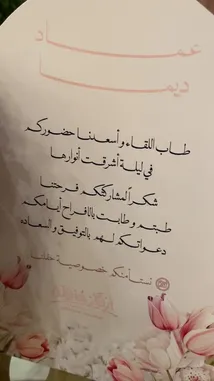 عماد
ديما
طاب اللقاء و أسعدنا حضوركم
في ليلة أشرقت أنوارها
شكراً لمشاركتكم فرحتنا
طبتم و طابت بالأفراح أيامكم
دعواتكم لهم بالتوفيق و السعاده
نستأمنكم خصوصية حفلنا